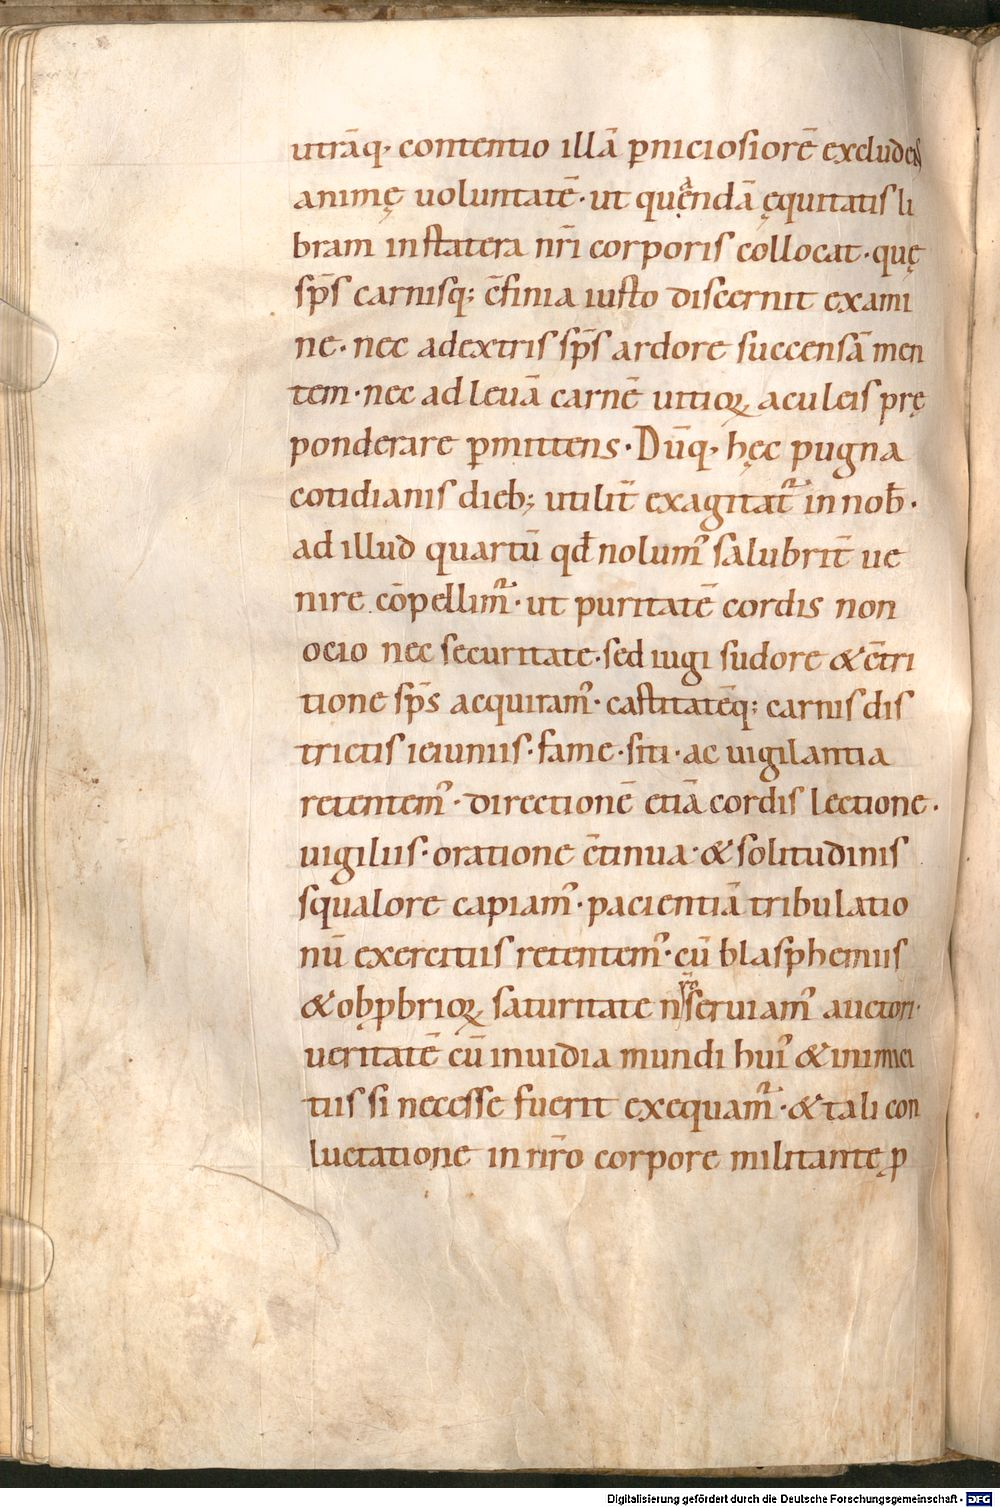 utrāq· contentio illā ꝑniciosiorē excludens
animę uoluntatē· ut quęndā ęquitatis li
bram in statera nr̄i corporis collocat· quę
sp̄s carnisq; c̄finia iusto discernit exami
ne· nec adextris sp̄s ardore succensā men
tem· nec ad leuā carnē uitioꝝ aculeis prę
ponderare ꝑmittens· Dūq· hęc pugna
cotidianis dieb; utilit̄ exagitat᷑ in nob̄·
ad illud quartū qđ nolum᾿ salubrit̄ ue
nire cōpellim᷑· ut puritatē cordis non
ocio nec securitate· sed iugi sudore & c̄tri
tione sp̄s acquiram᾿· castitatēq; carnis dis
trictis ieiuniis· fame· siti· ac uigilantia
retentem᾿· directionē etiā cordis lectione·
uigiliis· oratione c̄tinua· & solitudinis
squalore capiam᾿· pacientiā tribulatio
nū exercitiis retentem᾿· cū blasphemiis
& obꝓbrioꝝ saturitate nr̄o seruiam᾿ auctori·
ueritatē cū inuidia mundi hui᾿ & inimici
tiis si necesse fuerit exequam᷑· & tali con
luctatione in nr̄o corpore militante ꝑ
Digitalisierung gefördert durch die Deutsche Forschungsgemeinschaft - DFG